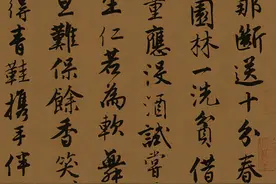 那斷送十分春
園林一洗貧借
重應浸酒試嘗
生仁若為軟舞
旦難保餘香笑
得青鞋攜手伴